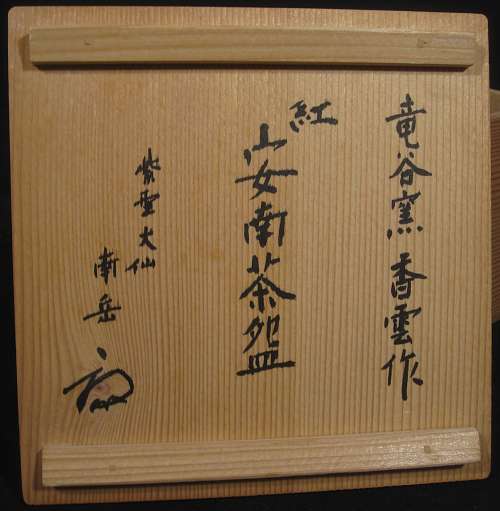 竜谷窯 香雲作
紅
安南茶盌
紫雲大仙
南岳